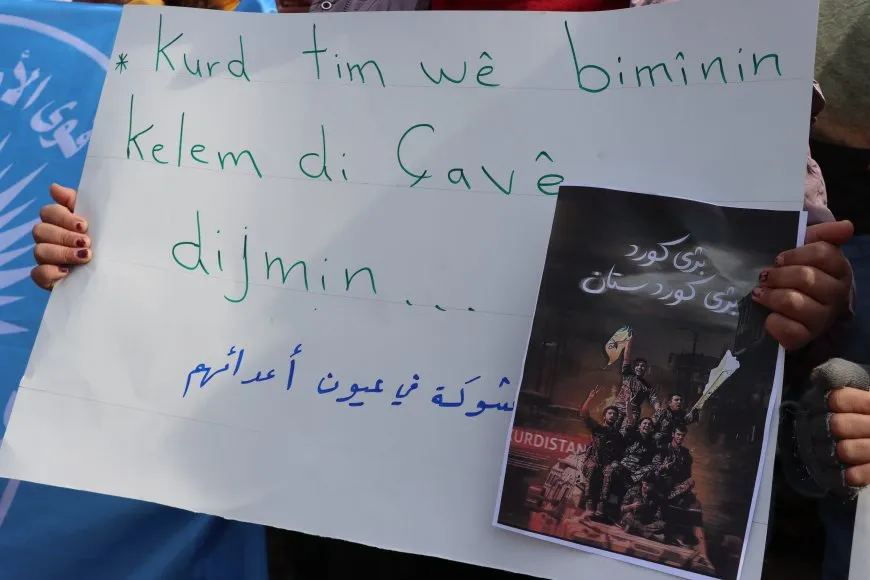 * Kurd tim wê bimînin
kelem di Çavê
dijmin ...
شوكة في عيون أعدائهم
بژی کورد
بژی کوردستان
KURDISTAN